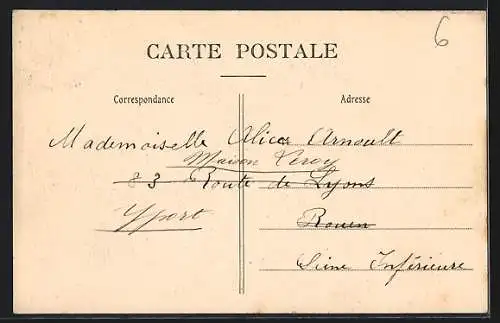 6
CARTE POSTALE
Correspondance
Adresse
Mademoiselle Alice Arnoult
Maison Leroy
83 Route de Lyons
Yport
Rouen
Seine Inférieure